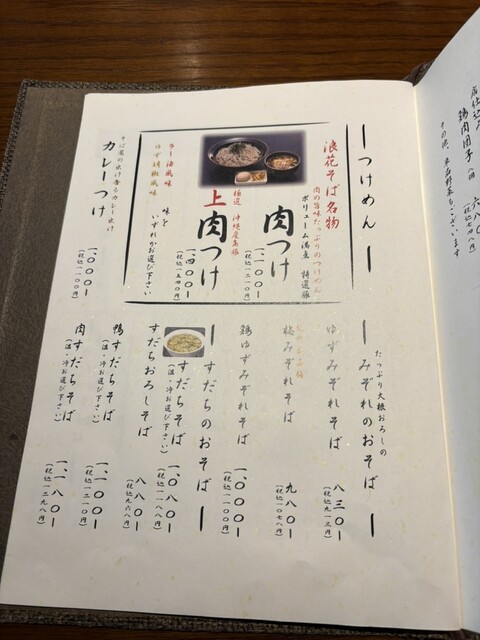 ーつけめんー
浪花そば名物
肉の旨味たっぷりのつけめん
ボリューム満点 特選豚
肉つけ
一、一〇〇ー
(税込一二一〇円)
極選 沖縄産島豚
上肉つけ
一、四〇〇ー
(税込一五四〇円)
味を
いずれかお選び下さい
ラー油風味
ゆず胡椒風味
そば屋の出汁香るカレーだけ
カレーつけ
一、〇〇〇ー
(税込一一〇〇円)
たっぷり大根おろしの
ーみぞれのおそばー
ゆずみぞれそば
八三〇ー
(税込九一三円)
梅みぞれそば
九八〇ー
(税込一〇七八円)
鶏ゆずみぞれそば
一、〇〇〇ー
(税込一一〇〇円)
ーすだちのおそばー
すだちそば
(温・冷お選び下さい)
一、〇八〇ー
(税込一一八八円)
すだちおろしそば
八八〇ー
(税込九六八円)
鴨すだちそば
(温・冷お選び下さい)
一、一〇〇ー
(税込一二一〇円)
肉すだちそば
(温・冷お選び下さい)
一、一八〇ー
(税込一二九八円)
鶏肉団子
六八〇ー
(税込七四八円)
その他、単品野菜もございます